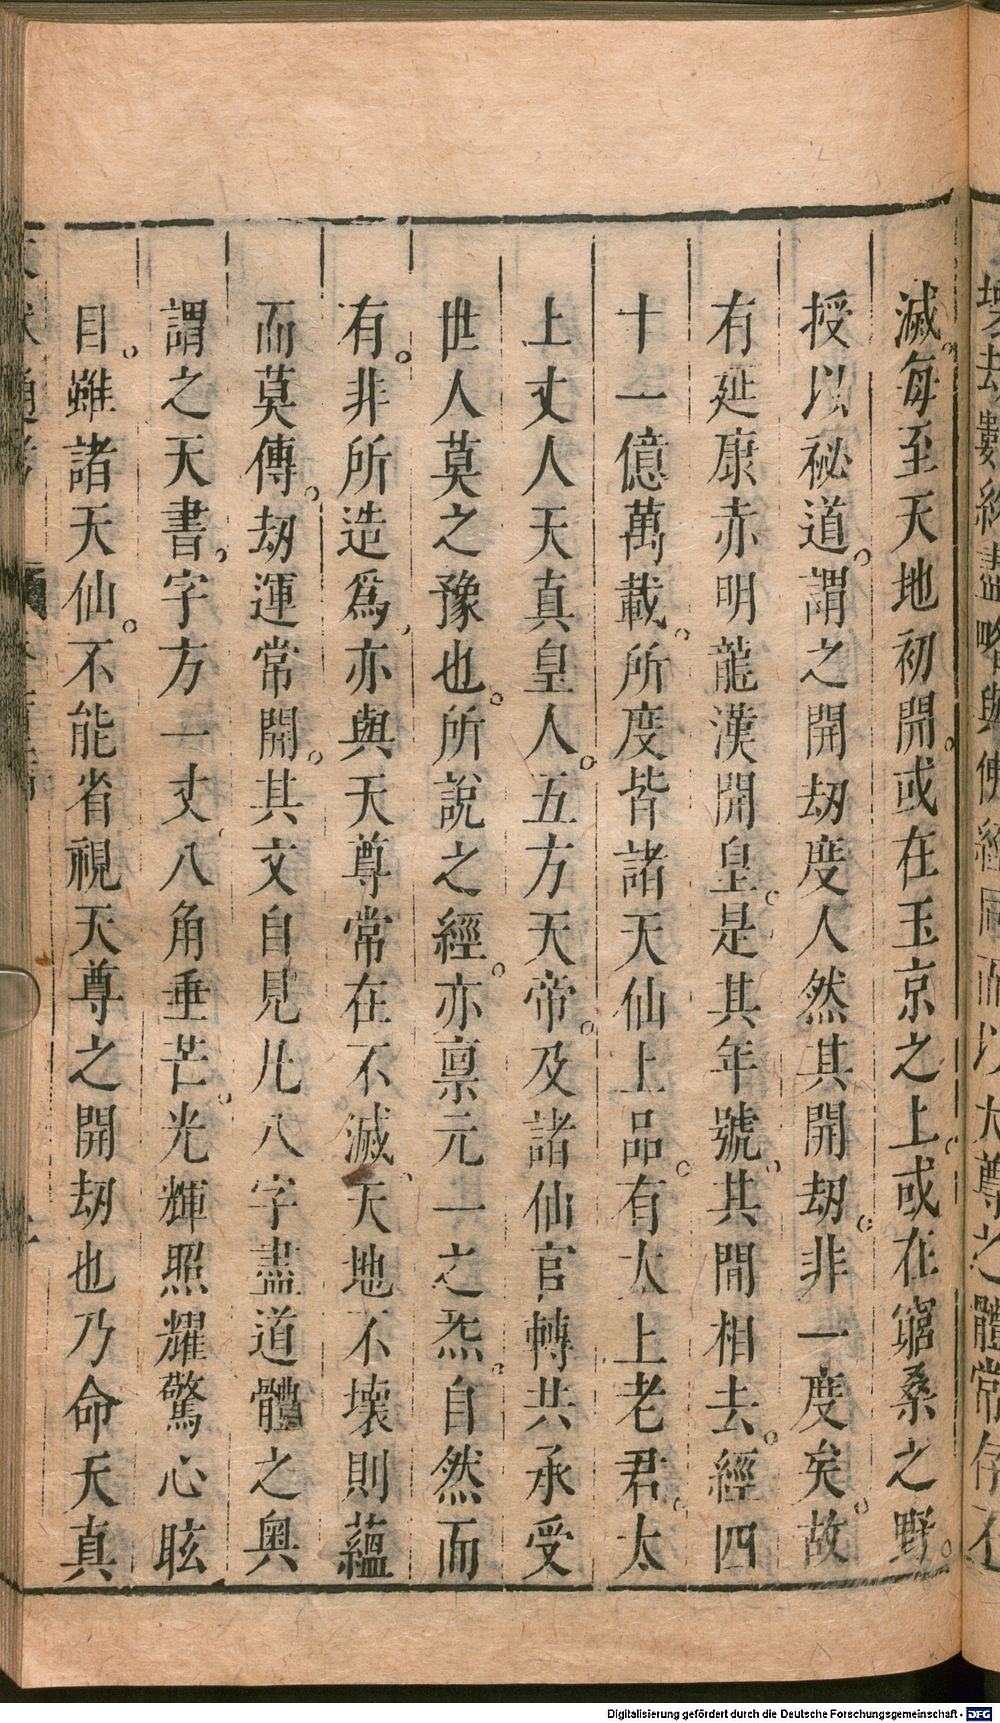 滅。每至天地初開。或在玉京之上。或在窮桑之野。
授以祕道。謂之開劫度人然其開劫。非一度矣。故
有延康赤明龍漢開皇。是其年號。其間相去。經四
十一億萬載。所度皆諸天仙上品。有太上老君。太
上丈人天真皇人。五方天帝。及諸仙官轉共承受
世人莫之豫也。所說之經。亦禀元一之炁。自然而
有。非所造爲。亦與天尊常在不滅。天地不壞則蘊
而莫傳。劫運常開。其文自見凡八字盡道體之奥
謂之天書。字方一丈。八角垂芒。光輝照耀驚心眩
目。雖諸天仙。不能省視天尊之開劫也乃命天真
Digitalisierung gefördert durch die Deutsche Forschungsgemeinschaft - DFG